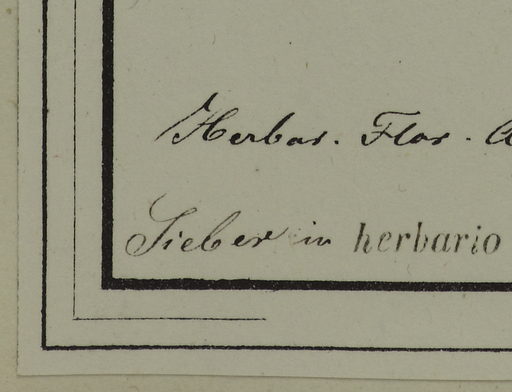 Herbar. Flor.
Sieber in herbario